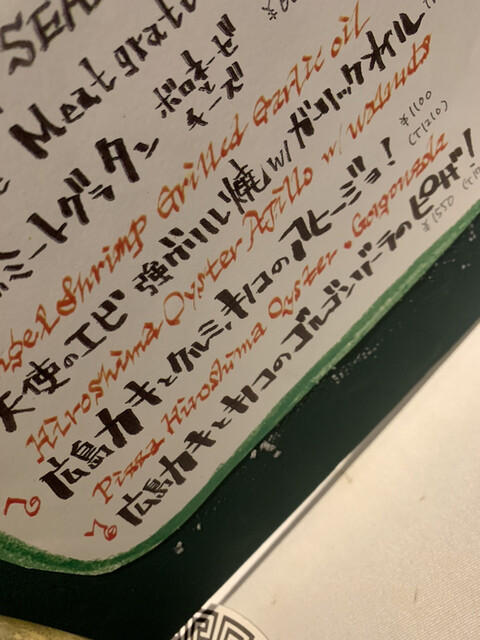 Meat grat
ミートグラタン
ボロネーゼ
Angel Shrimp Grilled Garlic
天使のエビ 強ボリル焼 w/ ガーリックオイル
Hiroshima Oyster Ajillo w/
広島カキとクルミ、キノコのアヒージョ!
¥1100
(¥1210)
Pizza Hiroshima Oyster & Gorgonzola
広島カキとキノコのゴルゴンゾーラのピザ!
¥1550